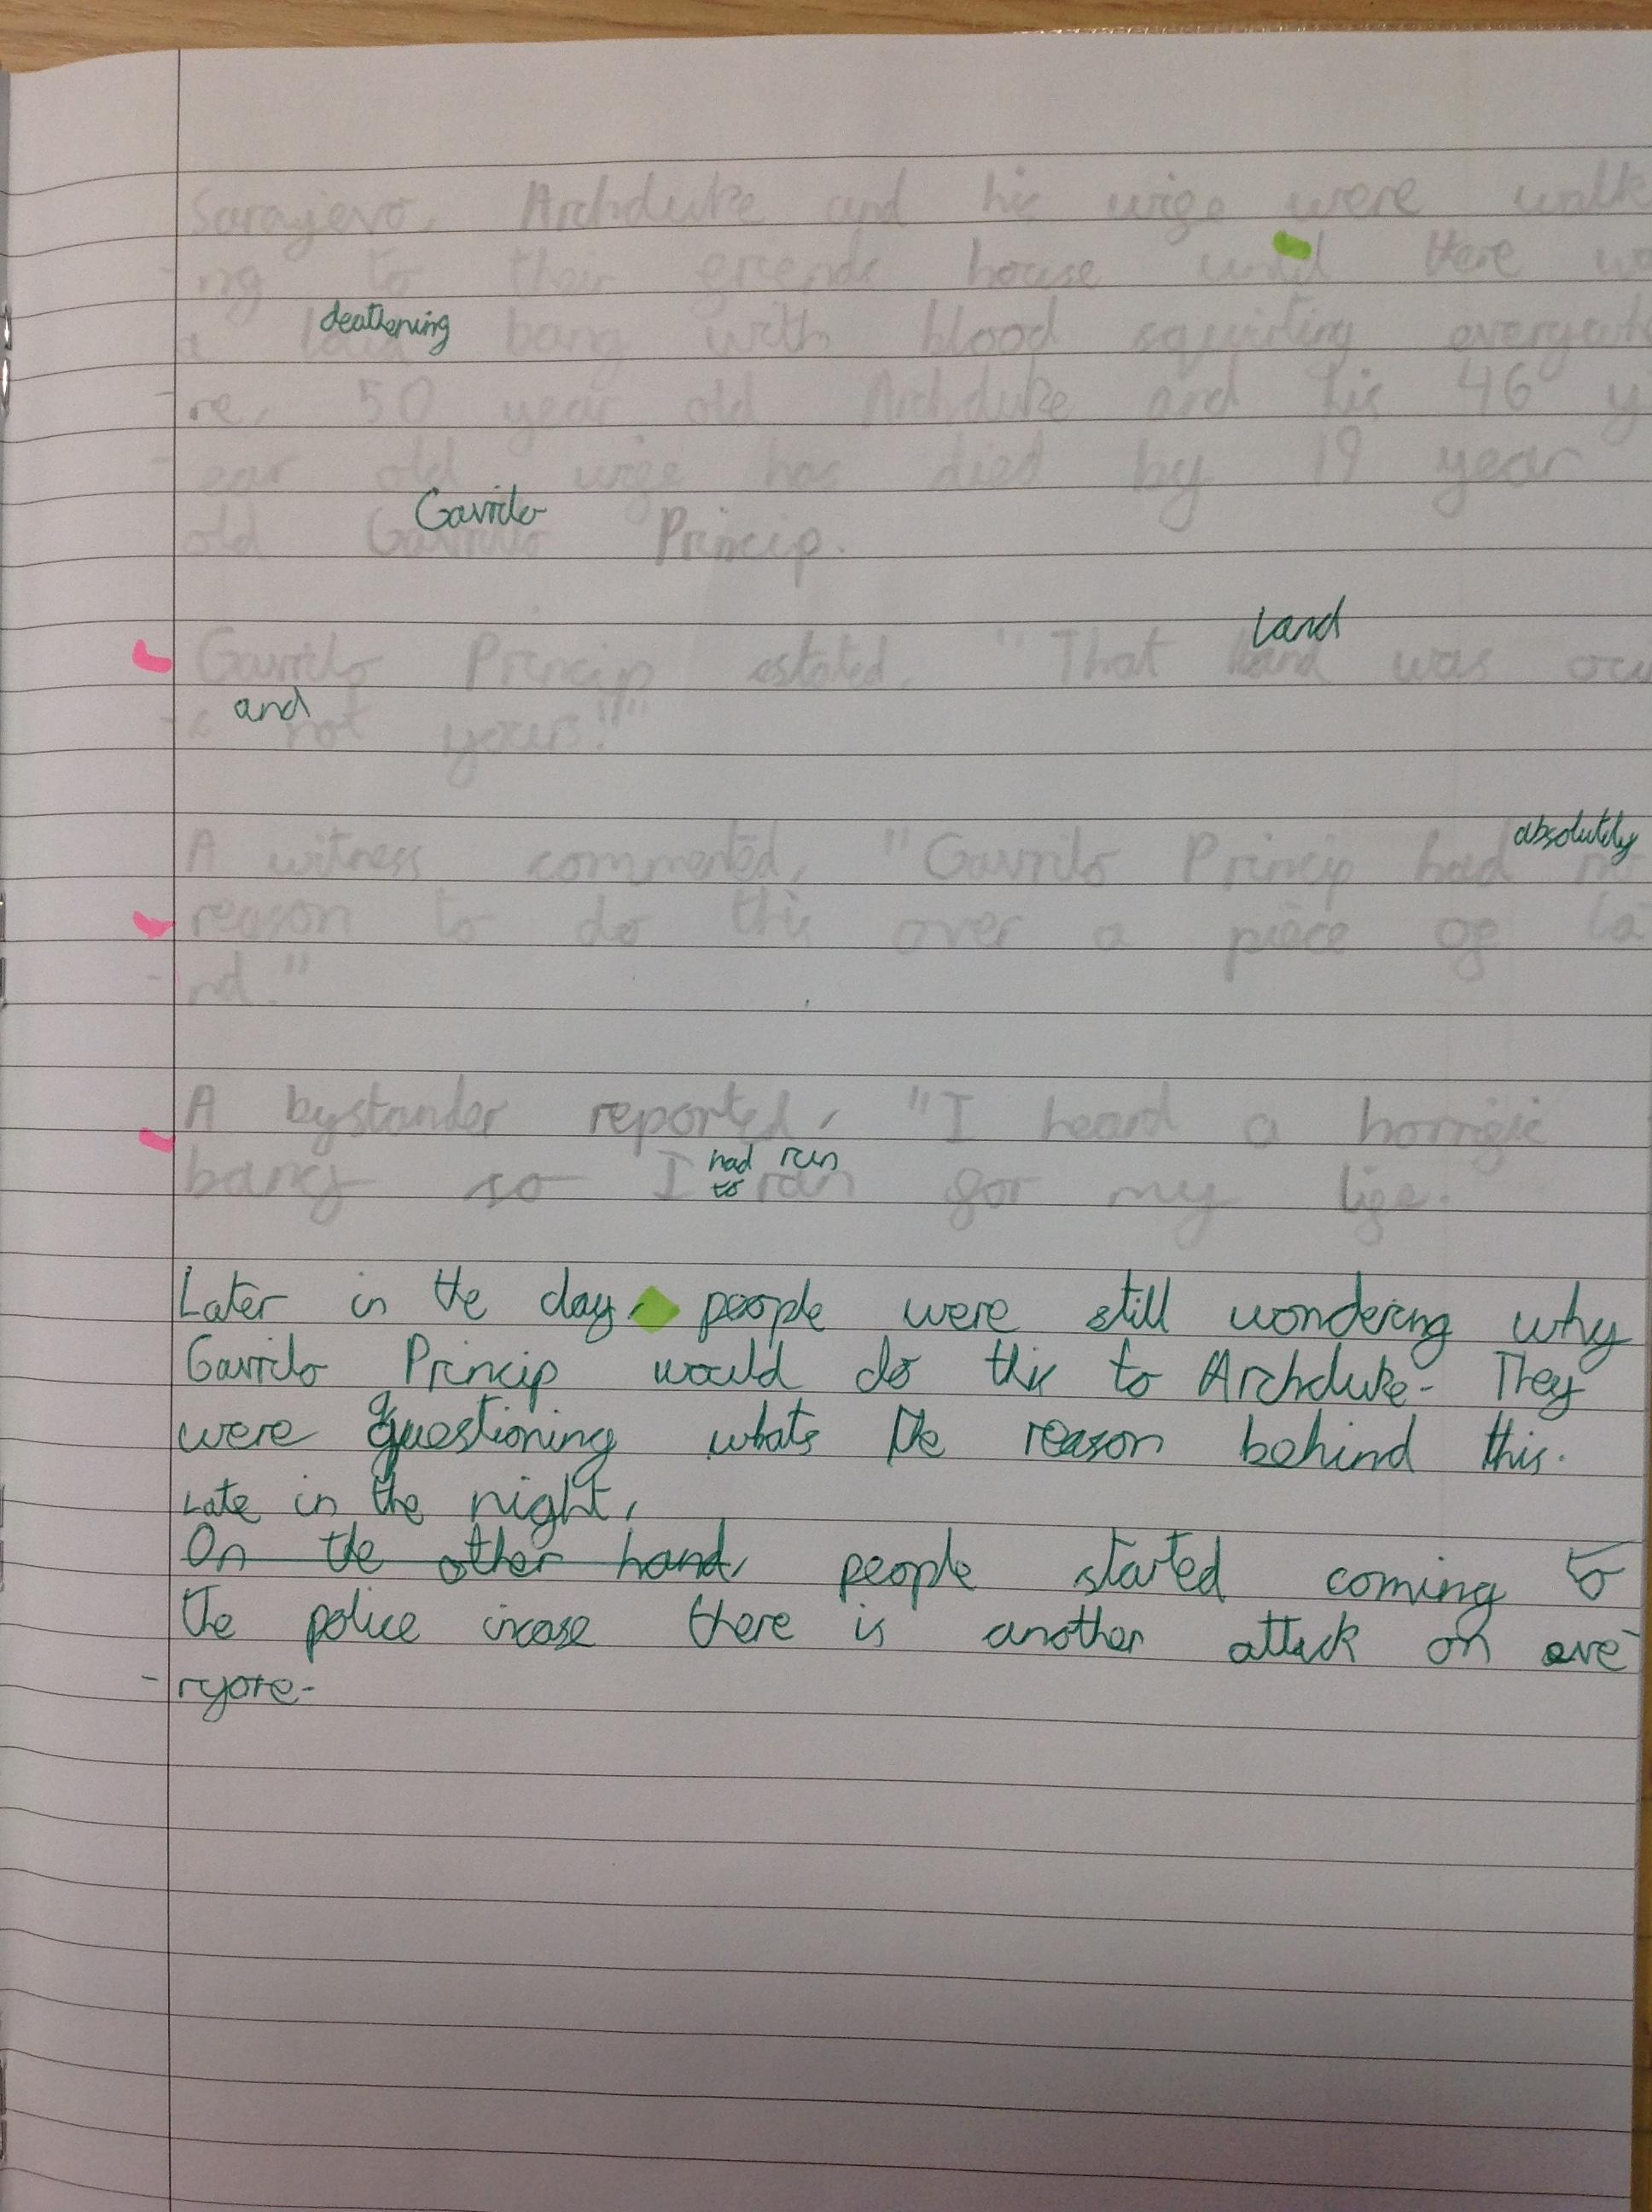 Sarajevo. Archduke and his wife were walk
-ng to their friends house until there wa
deafening
a loud bang with blood squirting everywh
-re. 50 year old Archduke and his 46 y
-ear old wife has died by 19 year
Gavrilo
old Gavrilo Princip.
Land
Gavrilo Princip stated, "That land was our
and
-s not yours!"
absolutely
A witness commented, "Gavrilo Princip had no
reason to do this over a piece of la
-nd."
A bystander reported, "I heard a horrific
had run
to
bang so I ran for my life.
Later in the day, people were still wondering why
Gavrilo Princip would do this to Archduke. They
were questioning whats the reason behind this.
Late in the night,
On the other hand, people started coming to
the police incase there is another attack on eve-
-ryone.